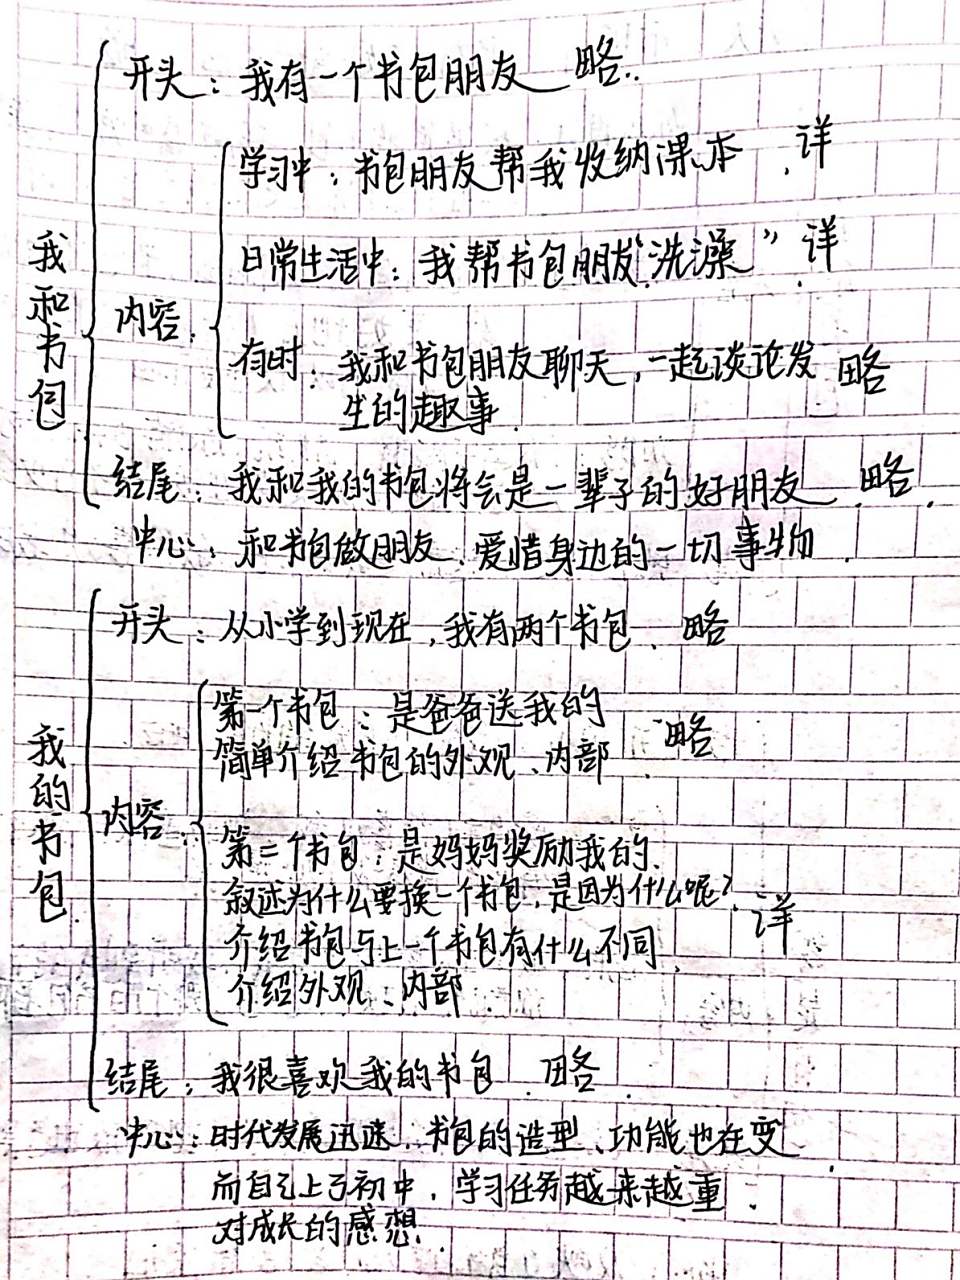 我和书包
开头：我有一个书包朋友 略.
内容：
学习中：书包朋友帮我收纳课本．详
日常生活中：我帮书包朋友“洗澡”．详
有时：我和书包朋友聊天，一起谈论发 略
生的趣事．
结尾：我和我的书包将会是一辈子的好朋友 略．
中心：和书包做朋友、爱惜身边的一切事物．
我的书包
开头：从小学到现在，我有两个书包．略
内容：
第一个书包：是爸爸送我的
简单介绍书包的外观、内部．略
第二个书包：是妈妈奖励我的．
叙述为什么要换一个书包，是因为什么呢？
介绍书包与上一个书包有什么不同．详
介绍外观、内部
结尾：我很喜欢我的书包．略
中心：时代发展迅速，书包的造型、功能也在变．
而自己上了初中，学习任务越来越重．
对成长的感想．